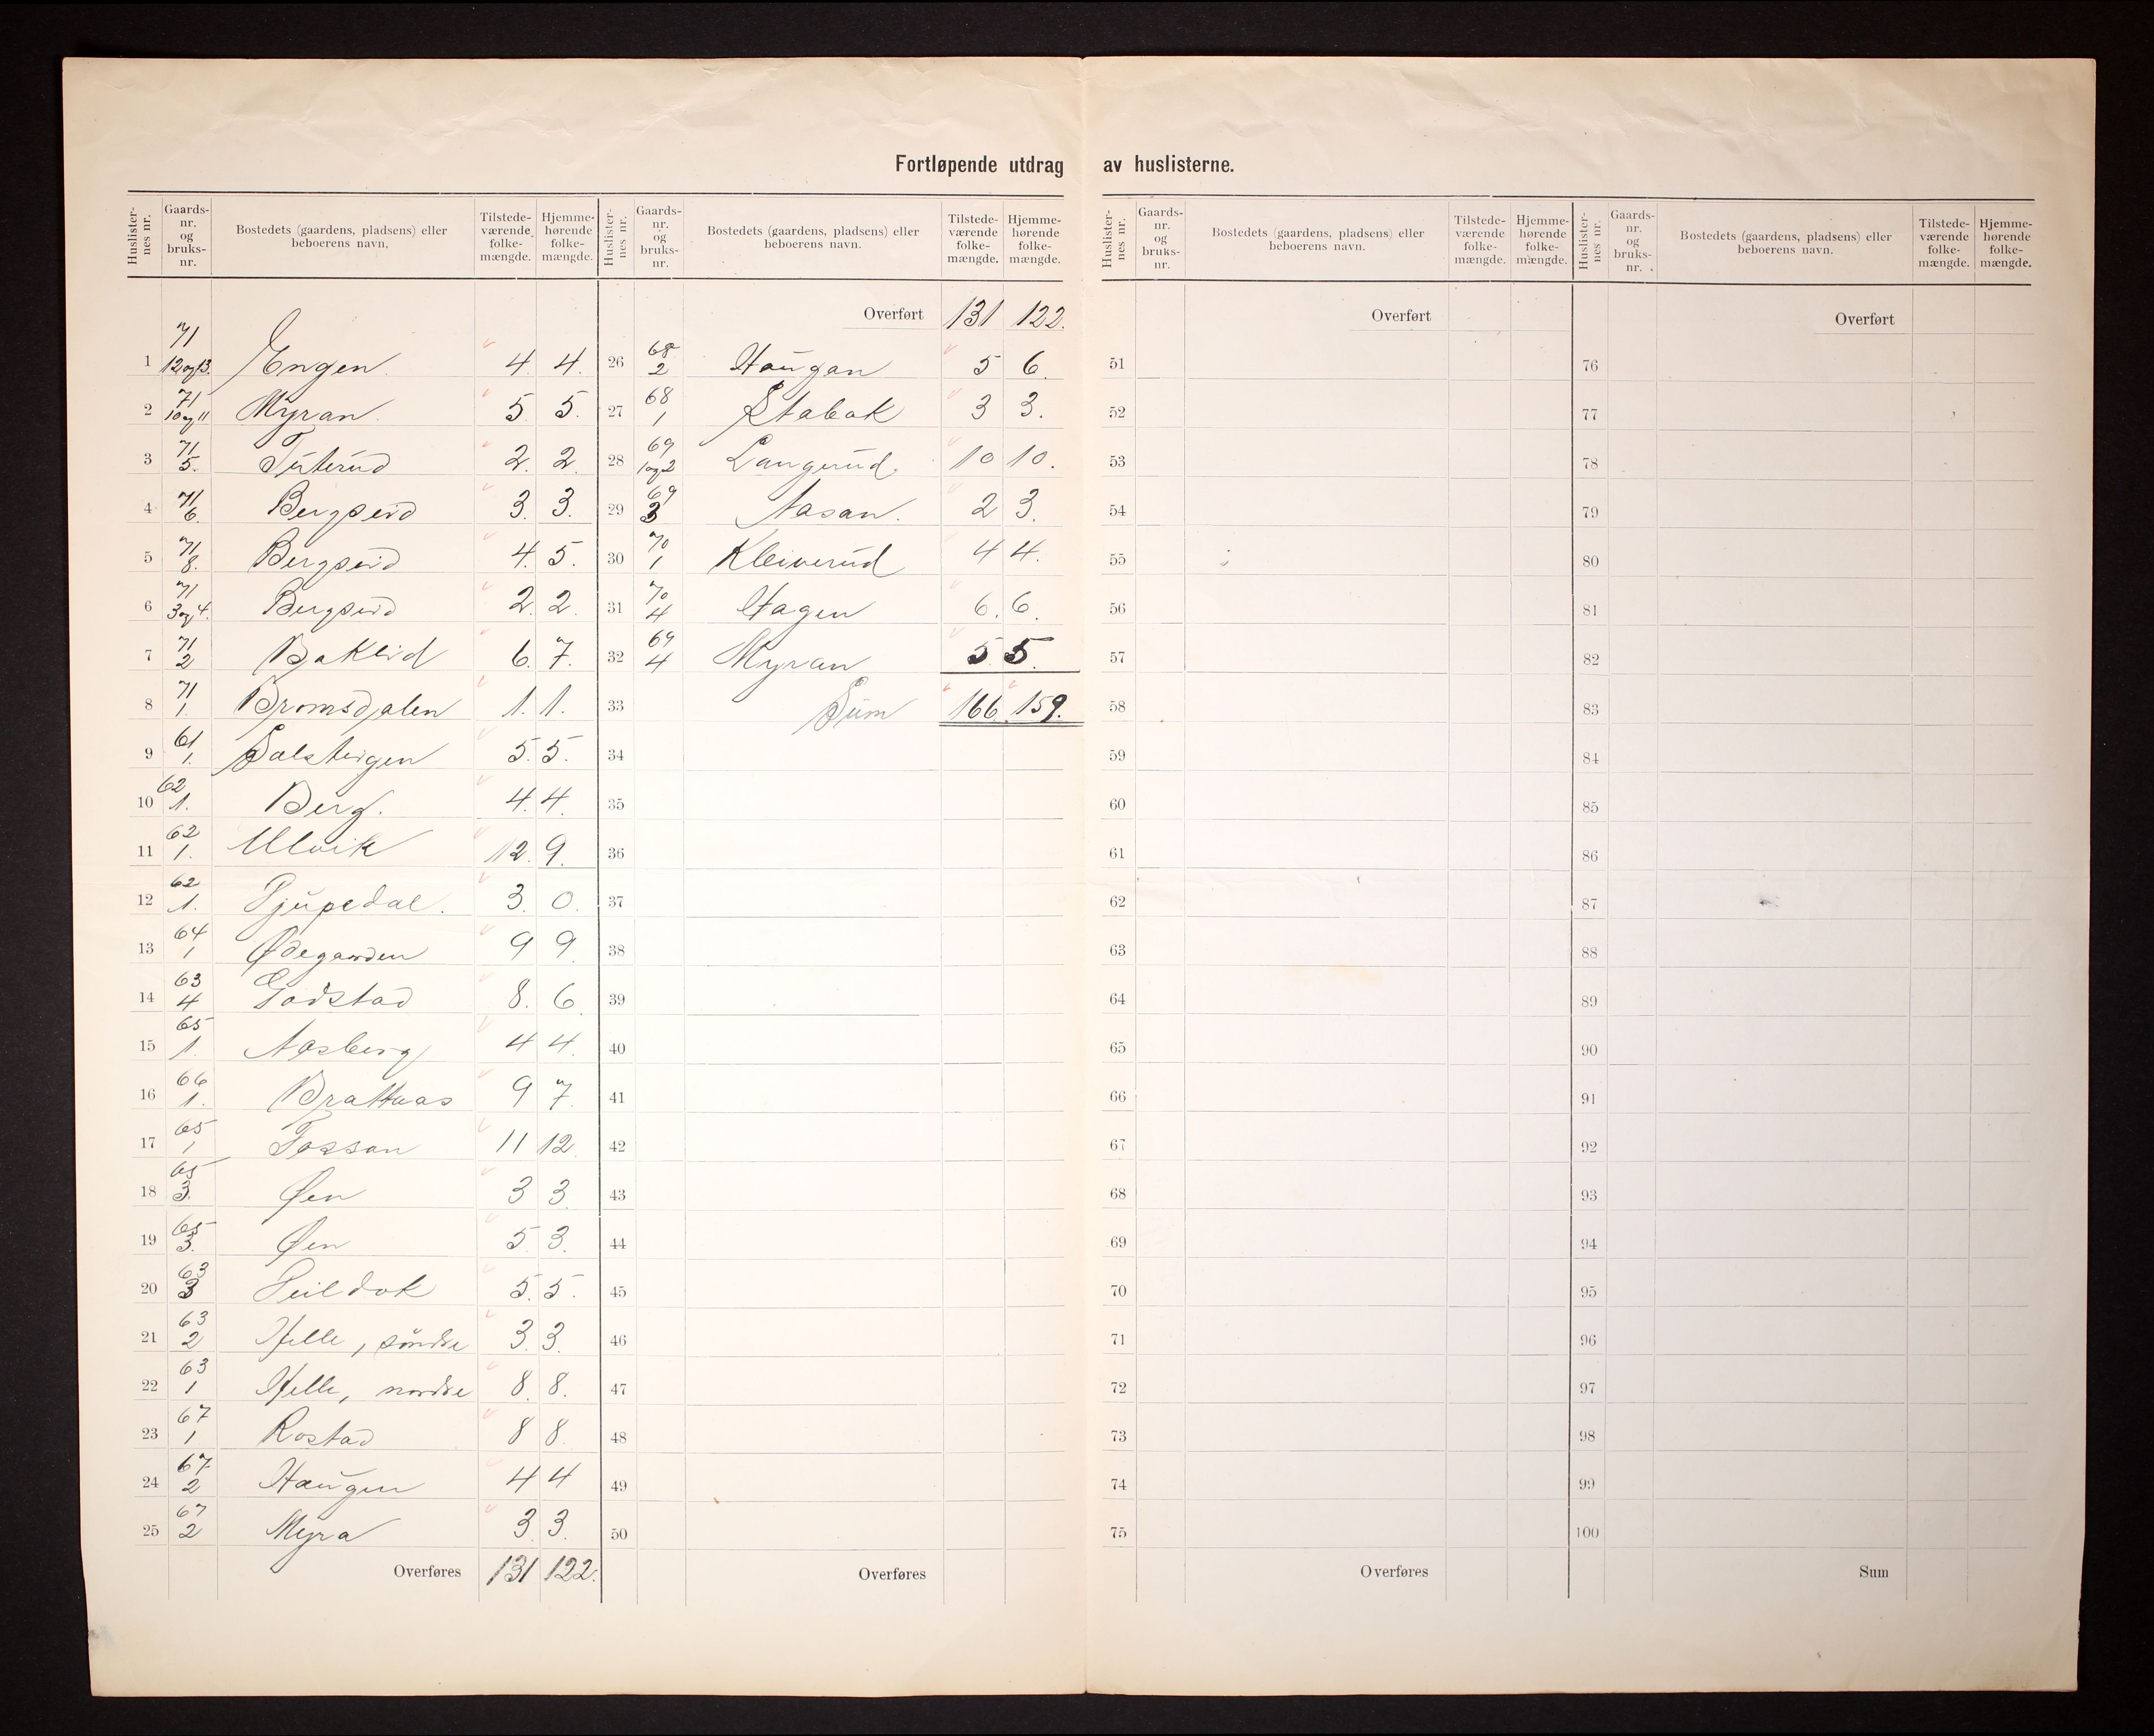 Fortløpende utdrag av huslisterne.
Huslister-nes nr. Gaards-nr. og bruks-nr. Bostedets (gaardens, pladsens) eller beboerens navn. Tilstede-værende folke-mængde. Hjemme-hørende folke-mængde.
1 71 12og13. Engen. 4. 4.
2 71 10og11 Myran. 5 5.
3 71 5. Tuterud 2. 2.
4 71 6. Bergseid 3. 3.
5 71 8. Bergseid 4. 5.
6 71 3og4. Bergseid 2. 2.
7 71 2 Baklid 6. 7.
8 71 1. Bromsdalen 1. 1.
9 61 1. 5. 5.
10 62 1. Berg. 4. 4.
11 62 1. Ulvik 12. 9.
12 62 1. Djupedal. 3. 0.
13 64 1 Ødegarden 9 9
14 63 4 Godstad 8. 6.
15 65 1. Aasberg 4 4.
16 66 1. Brattaas 9 7.
17 65 1 Fossan 11 12.
18 65 3. Øen 3 3.
19 65 3. Øen 5. 3.
20 63 3 5. 5.
21 63 2 Helle, söndre 3. 3.
22 63 1 Helle, nordre 8. 8.
23 67 1 Rostad 8 8.
24 67 2 Haugen 4 4
25 67 2 Myra 3. 3.
Overføres 131 122.
Huslister-nes nr. Gaards-nr. og bruks-nr. Bostedets (gaardens, pladsens) eller beboerens navn. Tilstede-værende folke-mængde. Hjemme-hørende folke-mængde.
Overført 131 122.
26 68 2 Haugan 5 6.
27 68 1 Stabak 3 3.
28 69 1og2 Langerud. 10 10.
29 69 3 Aasan. 2 3.
30 70 1 Kleiverud 4 4.
31 70 4 Hagen 6. 6.
32 69 4 Myran 5. 5.
33 Sum 166 159.
34
35
36
37
38
39
40
41
42
43
44
45
46
47
48
49
50
Overføres
Huslister-nes nr. Gaards-nr. og bruks-nr. Bostedets (gaardens, pladsens) eller beboerens navn. Tilstede-værende folke-mængde. Hjemme-hørende folke-mængde.
Overført
51
52
53
54
55
56
57
58
59
60
61
62
63
64
65
66
67
68
69
70
71
72
73
74
75
Overføres
Huslister-nes nr. Gaards-nr. og bruks-nr. Bostedets (gaardens, pladsens) eller beboerens navn. Tilstede-værende folke-mængde. Hjemme-hørende folke-mængde.
Overført
76
77
78
79
80
81
82
83
84
85
86
87
88
89
90
91
92
93
94
95
96
97
98
99
100
Sum